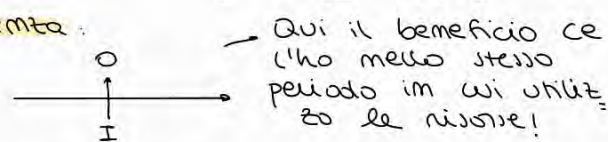 Qui il beneficio ce
l'ho nello stesso
O
periodo in cui utiliz=
zo le risorse!
I